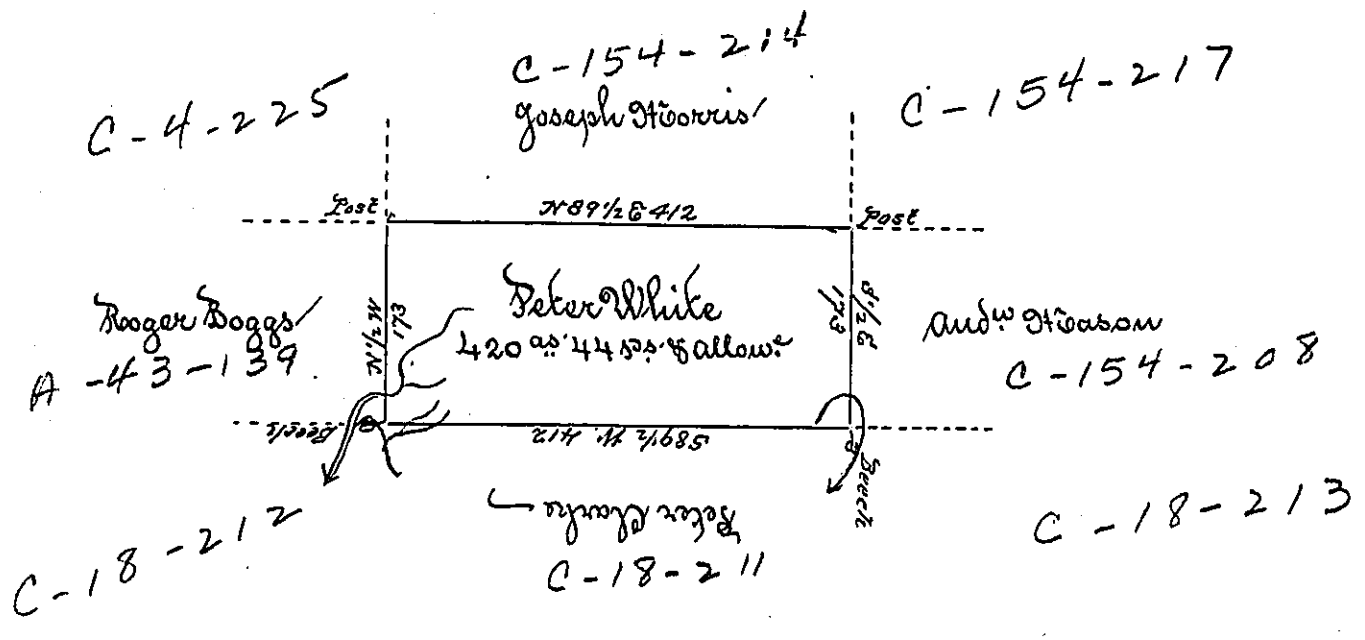 C-154-214
C-4-225
Joseph Morris
C-154-217
Post
N 89 1/2 E 412
Post
Roger Boggs
A-43-139
N. 1/2 W
173
Peter White
420 as. 44 ps. & allowe
S 1/2 E
173
Andw Mason
C-154-208
Beech
S 89 1/2 W. 412
Beech
Peter Clarke
C-18-212
C-18-211
C-18-213